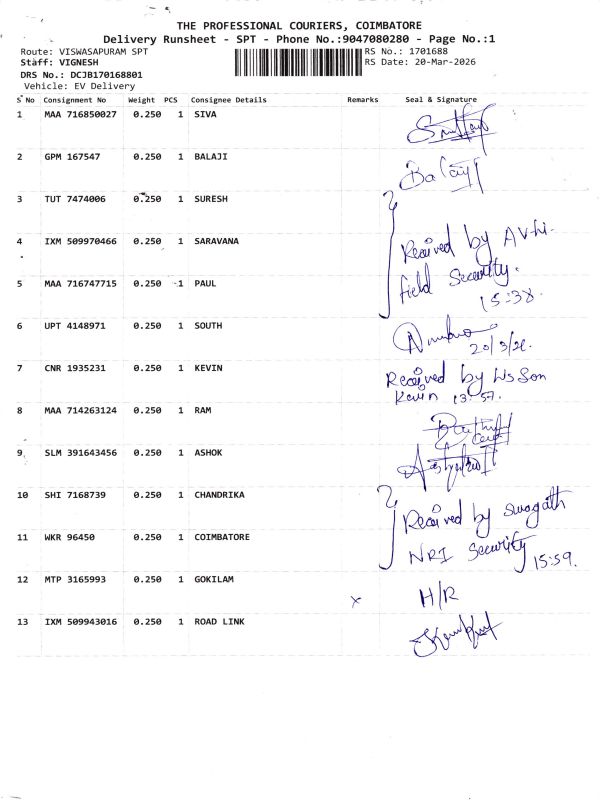 THE PROFESSIONAL COURIERS, COIMBATORE
Delivery Runsheet - SPT - Phone No.:9047080280 - Page No.:1
Route: VISWASAPURAM SPT RS No.: 1701688
Staff: VIGNESH RS Date: 20-Mar-2026
DRS No.: DCJB170168801
Vehicle: EV Delivery
S No Consignment No Weight PCS Consignee Details Remarks Seal & Signature
1 MAA 716850027 0.250 1 SIVA
2 GPM 167547 0.250 1 BALAJI Balaji
3 TUT 7474006 0.250 1 SURESH
4 IXM 509970466 0.250 1 SARAVANA Received by
5 MAA 716747715 0.250 1 PAUL field Security.
15:38.
6 UPT 4148971 0.250 1 SOUTH
20/3/26.
7 CNR 1935231 0.250 1 KEVIN Received by His Son
Kevin 13:57.
8 MAA 714263124 0.250 1 RAM
9 SLM 391643456 0.250 1 ASHOK
10 SHI 7168739 0.250 1 CHANDRIKA Received by Swagath
11 WKR 96450 0.250 1 COIMBATORE NRI Security
15:59.
12 MTP 3165993 0.250 1 GOKILAM x H/R
13 IXM 509943016 0.250 1 ROAD LINK